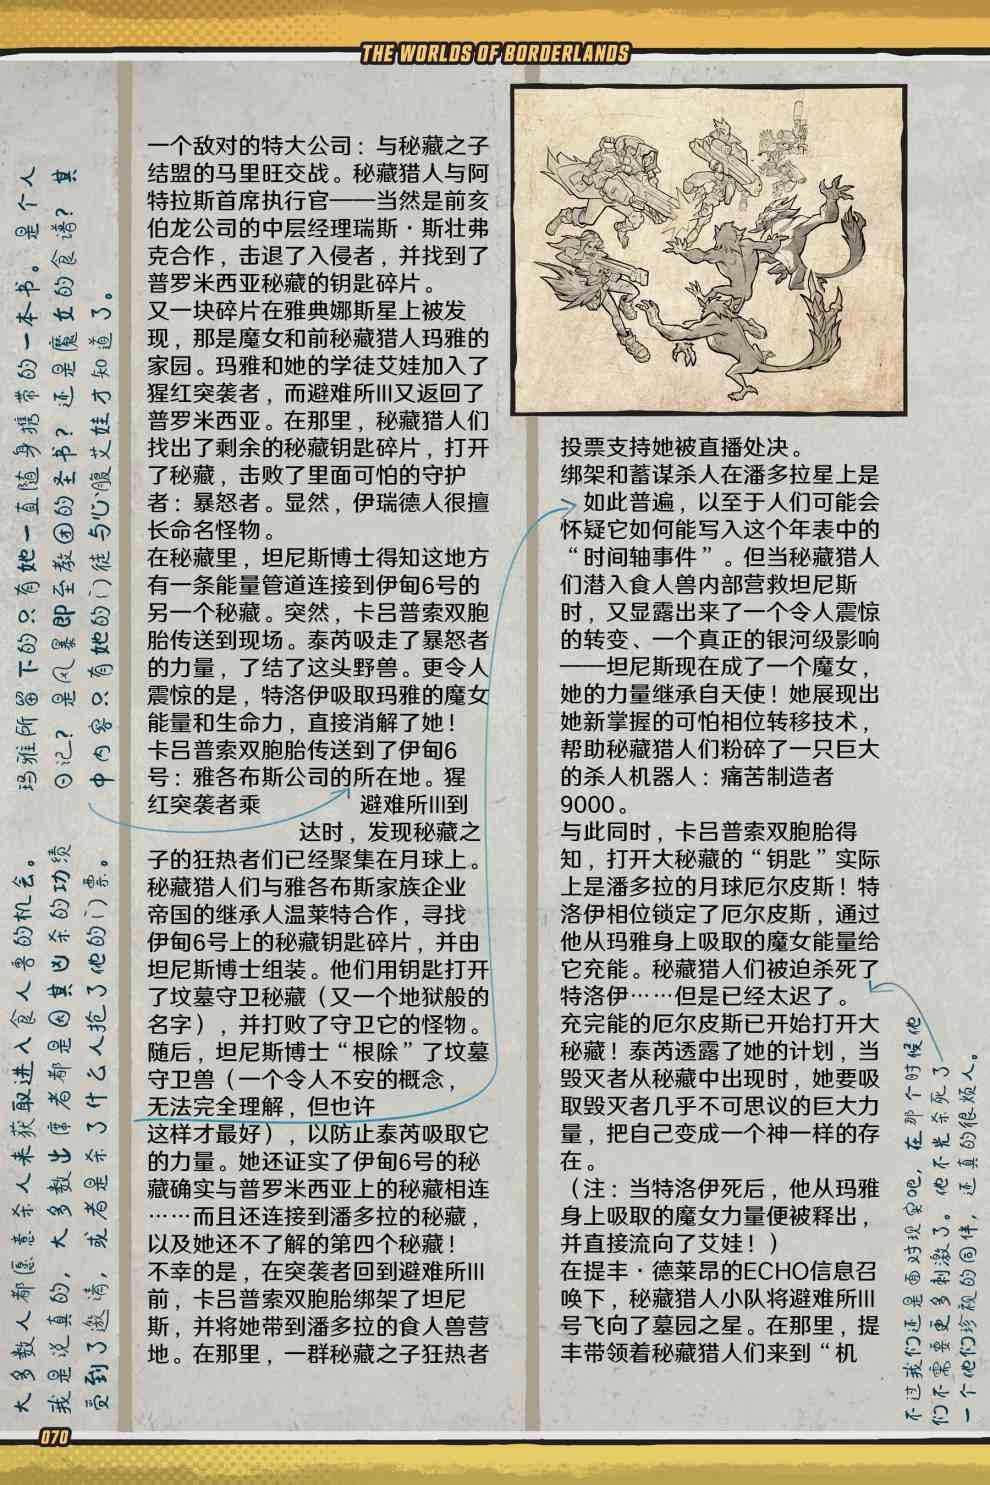 THE WORLDS OF BORDERLANDS
一个敌对的特大公司：与秘藏之子
结盟的马里旺交战。秘藏猎人与阿
特拉斯首席执行官——当然是前亥
伯龙公司的中层经理瑞斯·斯壮弗
克合作，击退了入侵者，并找到了
普罗米西亚秘藏的钥匙碎片。
又一块碎片在雅典娜斯星上被发
现，那是魔女和前秘藏猎人玛雅的
家园。玛雅和她的学徒艾娃加入了
猩红突袭者，而避难所III又返回了
普罗米西亚。在那里，秘藏猎人们
找出了剩余的秘藏钥匙碎片，打开
了秘藏，击败了里面可怕的守护
者：暴怒者。显然，伊瑞德人很擅
长命名怪物。
在秘藏里，坦尼斯博士得知这地方
有一条能量管道连接到伊甸6号的
另一个秘藏。突然，卡吕普索双胞
胎传送到现场。泰芮吸走了暴怒者
的力量，了结了这头野兽。更令人
震惊的是，特洛伊吸取玛雅的魔女
能量和生命力，直接消解了她！
卡吕普索双胞胎传送到了伊甸6
号：雅各布斯公司的所在地。猩
红突袭者乘 避难所III到
达时，发现秘藏之
子的狂热者们已经聚集在月球上。
秘藏猎人们与雅各布斯家族企业
帝国的继承人温莱特合作，寻找
伊甸6号上的秘藏钥匙碎片，并由
坦尼斯博士组装。他们用钥匙打开
了坟墓守卫秘藏（又一个地狱般的
名字），并打败了守卫它的怪物。
随后，坦尼斯博士“根除”了坟墓
守卫兽（一个令人不安的概念，
无法完全理解，但也许
这样才最好），以防止泰芮吸取它
的力量。她还证实了伊甸6号的秘
藏确实与普罗米西亚上的秘藏相连
……而且还连接到潘多拉的秘藏，
以及她还不了解的第四个秘藏！
不幸的是，在突袭者回到避难所III
前，卡吕普索双胞胎绑架了坦尼
斯，并将她带到潘多拉的食人兽营
地。在那里，一群秘藏之子狂热者
投票支持她被直播处决。
绑架和蓄谋杀人在潘多拉星上是
如此普遍，以至于人们可能会
怀疑它如何能写入这个年表中的
“时间轴事件”。但当秘藏猎人
们潜入食人兽内部营救坦尼斯
时，又显露出来了一个令人震惊
的转变、一个真正的银河级影响
——坦尼斯现在成了一个魔女，
她的力量继承自天使！她展现出
她新掌握的可怕相位转移技术，
帮助秘藏猎人们粉碎了一只巨大
的杀人机器人：痛苦制造者
9000。
与此同时，卡吕普索双胞胎得
知，打开大秘藏的“钥匙”实际
上是潘多拉的月球厄尔皮斯！特
洛伊相位锁定了厄尔皮斯，通过
他从玛雅身上吸取的魔女能量给
它充能。秘藏猎人们被迫杀死了
特洛伊……但是已经太迟了。
充完能的厄尔皮斯已开始打开大
秘藏！泰芮透露了她的计划，当
毁灭者从秘藏中出现时，她要吸
取毁灭者几乎不可思议的巨大力
量，把自己变成一个神一样的存
在。
（注：当特洛伊死后，他从玛雅
身上吸取的魔女力量便被释出，
并直接流向了艾娃！）
在提丰·德莱昂的ECHO信息召
唤下，秘藏猎人小队将避难所III
号飞向了墓园之星。在那里，提
丰带领着秘藏猎人们来到“机
玛雅所留下的只有她一直随身携带的一本书。是个人
日记？是风暴即至教团的圣书？还是魔女的食谱？其
中内容只有她的门徒与心腹艾娃才知道了。
大多数人都愿意杀人来获取进入食人兽的机会。
我是说真的，大多数出席者都是因其凶杀的功绩
受到了邀请，或者是杀了什么人抢了他的门票。
不过我们还是面对现实吧，在那个时候他
们不需要更多刺激了。他不光杀死了
一个他们珍视的同伴，还真的很烦人。
070